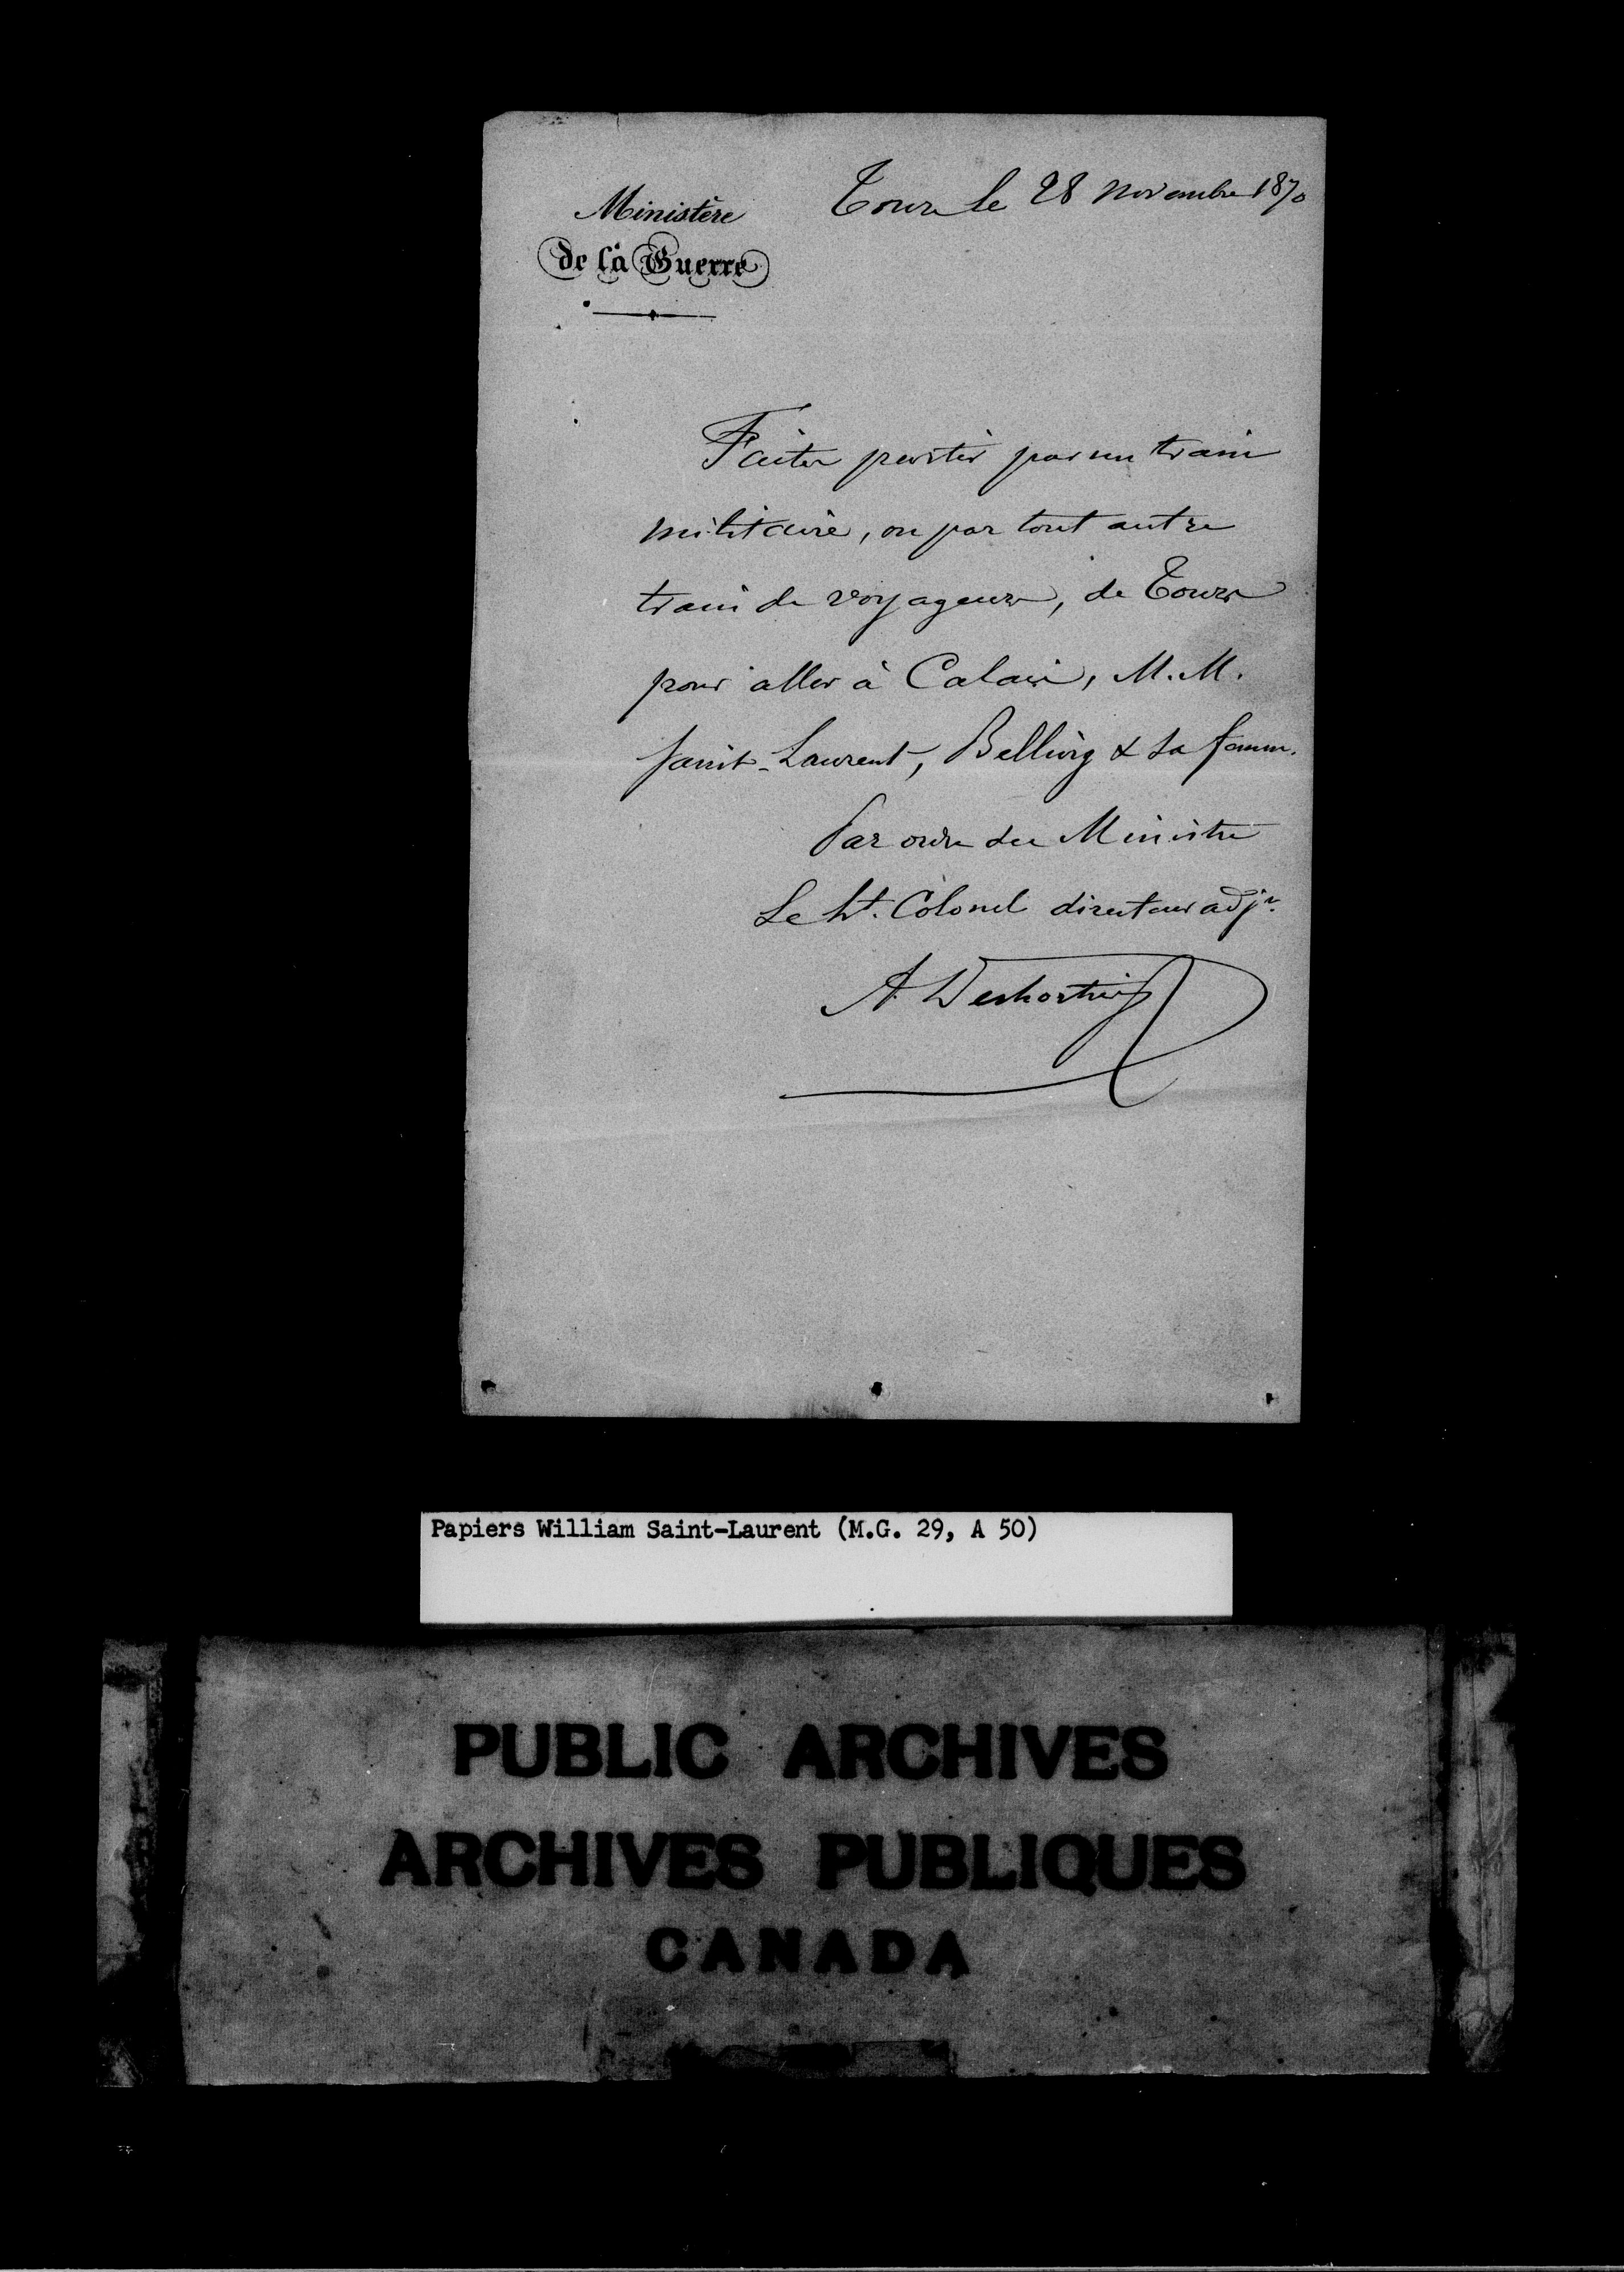 Ministère
de la Guerre
Tours le 28 Novembre 1870
Faites partir par un train
militaire, ou par tout autre
train de voyageurs, de Tours
pour aller à Calais, M.M.
Saint-Laurent, Bellwig & sa femme.
Par ordre du Ministre
Le Lt. Colonel directeur adjt.
A. Deshorties
Papiers William Saint-Laurent (M.G. 29, A 50)
PUBLIC ARCHIVES
ARCHIVES PUBLIQUES
CANADA